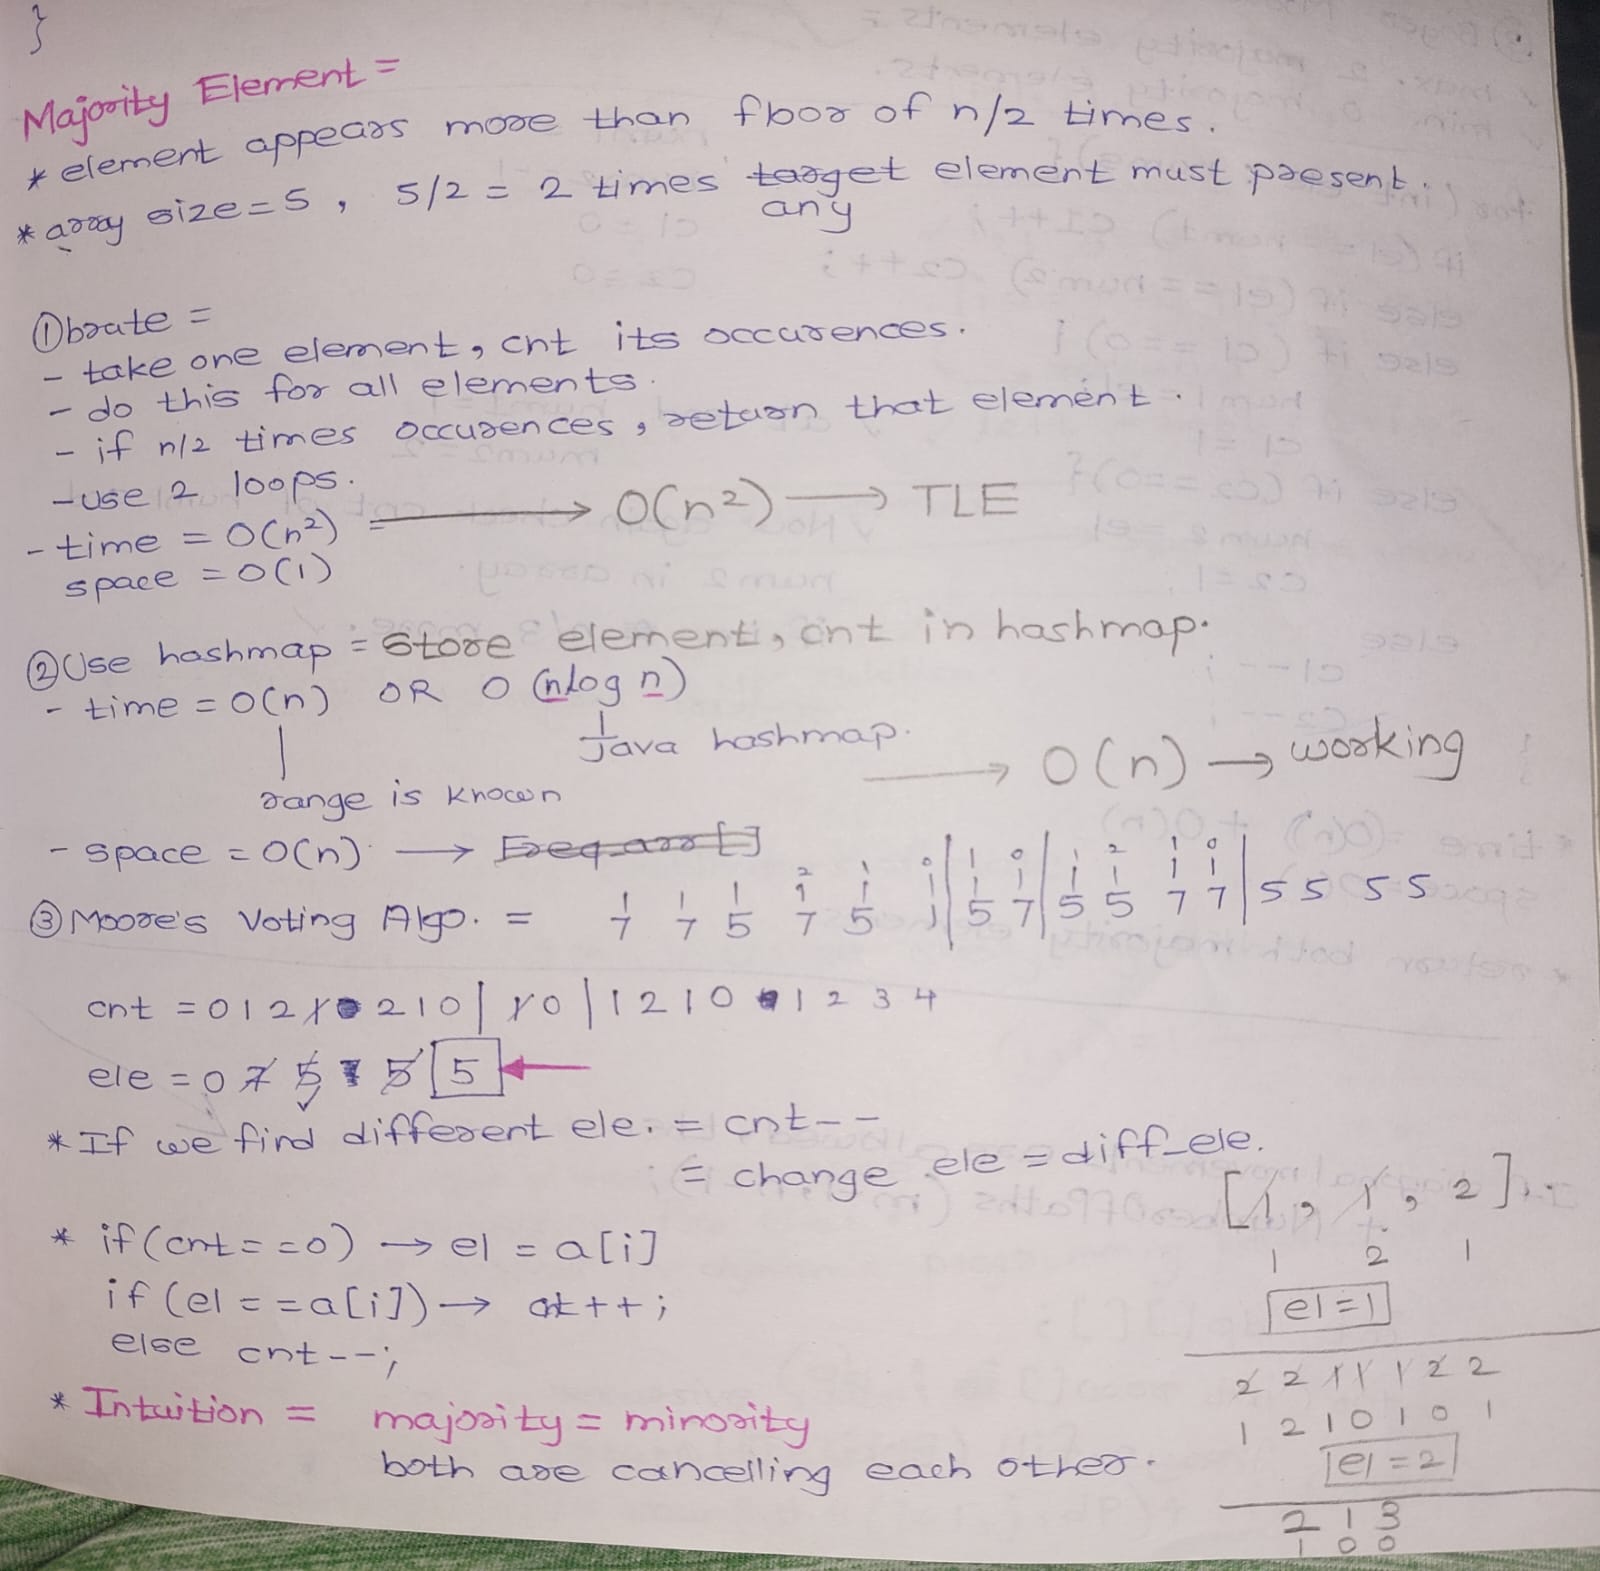 }
Majority Element =
* element appears more than floor of n/2 times.
* array size = 5 , 5/2 = 2 times target element must present.
any
① brute =
- take one element, cnt its occurences.
- do this for all elements.
- if n/2 times occurences, return that element.
- use 2 loops.
- time = O(n²) = ⟶ O(n²) ⟶ TLE
space = O(1)
② Use hashmap = Store element, cnt in hashmap.
- time = O(n) OR O(nlog n)
Java hashmap.
⟶ O(n) → working
range is known
- space = O(n) → Freq arr[]
1 1 1 2 1 0 | 1 0 | 1 2 1 0 |
③ Moore's Voting Algo. = 7 7 5 7 5 1 | 5 7 | 5 5 7 7 | 5 5 5 5
cnt = 0 1 2 1 2 1 0 | 1 0 | 1 2 1 0 1 2 3 4
ele = 0 7 5 5 5 ←
* If we find different ele. = cnt--
= change ele = diff_ele.
[1, 1, 2]
1 2 1
* if(cnt==0) → el = a[i]
if(el==a[i]) → cnt++;
el=1
else cnt--;
2 2 1 1 1 2 2
* Intuition = majority = minority
1 2 1 0 1 0 1
both are cancelling each other.
el=2
2 1 3
1 0 0